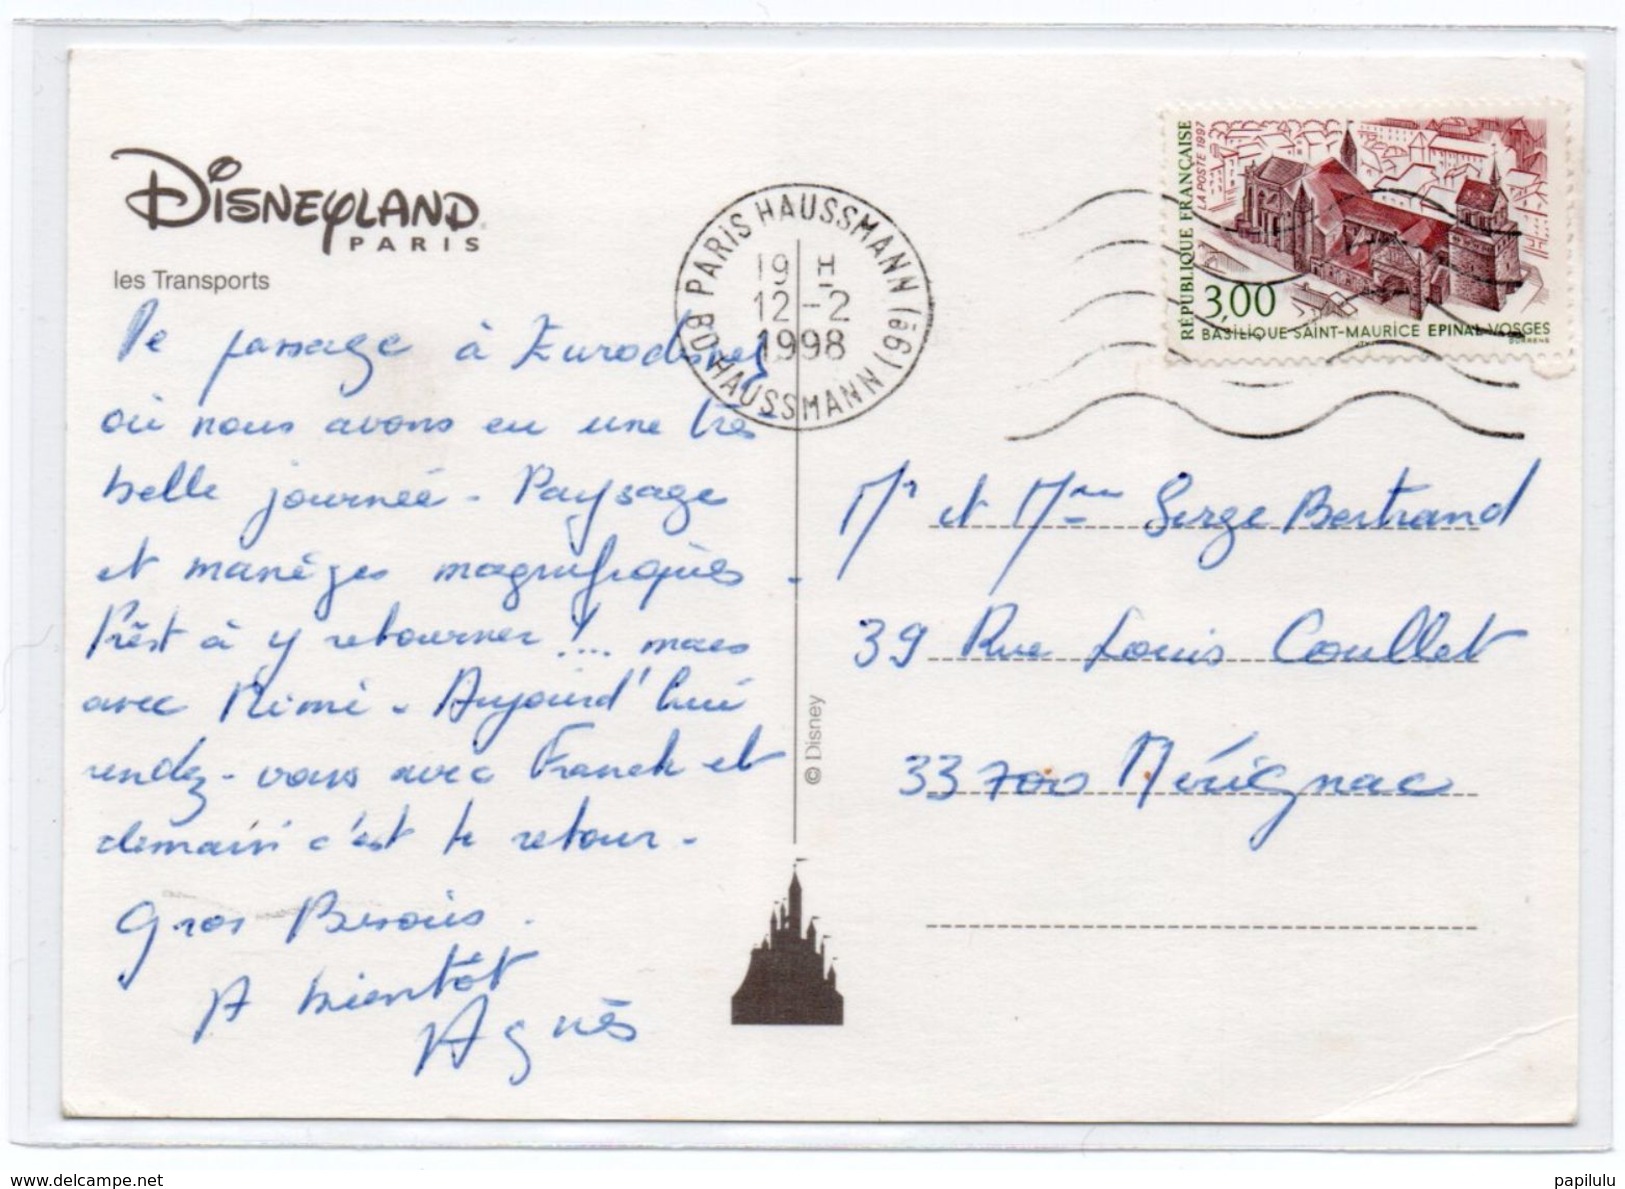 DISNEYLAND
PARIS
les Transports
De passage à Eurodisney
où nous avons eu une très
belle journée - Paysage
et manèges magnifiques.
Prêst à y retourner !... mais
avec Mimi - Aujourd'hui
rendez-vous avec Franck et
demain c'est le retour -
Gros Bisous.
A bientôt
Agnès
© Disney
PARIS HAUSSMANN (8e)
19 H
12-2
1998
BD HAUSSMANN (8e)
RÉPUBLIQUE FRANÇAISE
LA POSTE 1997
3,00
BASILIQUE SAINT-MAURICE EPINAL-VOSGES
Mr et Mme Serge Bertrand
39 Rue Louis Coullet
33700 Mérignac
www.delcampe.net
papilulu